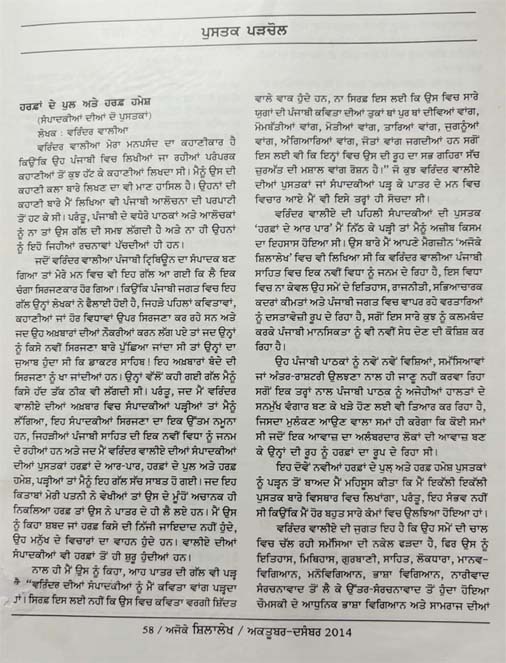 ਪੁਸਤਕ ਪੜਚੋਲ
ਹਰਫ਼ਾਂ ਦੇ ਪੁਲ ਅਤੇ ਹਰਫ਼ ਹਮੇਸ਼
(ਸੰਪਾਦਕੀਆਂ ਦੀਆਂ ਦੋ ਪੁਸਤਕਾਂ)
ਲੇਖਕ : ਵਰਿੰਦਰ ਵਾਲੀਆ
ਵਰਿੰਦਰ ਵਾਲੀਆ ਮੇਰਾ ਮਨਪਸੰਦ ਦਾ ਕਹਾਣੀਕਾਰ ਹੈ
ਕਿਉਂਕਿ ਉਹ ਪੰਜਾਬੀ ਵਿਚ ਲਿਖੀਆਂ ਜਾ ਰਹੀਆਂ ਪਰੰਪਰਕ
ਕਹਾਣੀਆਂ ਤੋਂ ਕੁਝ ਹੱਟ ਕੇ ਕਹਾਣੀਆਂ ਲਿਖਦਾ ਸੀ। ਮੈਨੂੰ ਉਸ ਦੀ
ਕਹਾਣੀ ਕਲਾ ਬਾਰੇ ਲਿਖਣ ਦਾ ਵੀ ਮਾਣ ਹਾਸਿਲ ਹੈ। ਉਹਨਾਂ ਦੀ
ਕਹਾਣੀ ਬਾਰੇ ਮੈਂ ਲਿਖਿਆ ਵੀ ਪੰਜਾਬੀ ਆਲੋਚਨਾ ਦੀ ਪਰਪਾਟੀ
ਤੋਂ ਹਟ ਕੇ ਸੀ। ਪਰੰਤੂ, ਪੰਜਾਬੀ ਦੇ ਵਧੇਰੇ ਪਾਠਕਾਂ ਅਤੇ ਆਲੋਚਕਾਂ
ਨੂੰ ਨਾ ਤਾਂ ਉਸ ਗੱਲ ਦੀ ਸਮਝ ਲੱਗਦੀ ਹੈ ਅਤੇ ਨਾ ਹੀ ਉਹਨਾਂ
ਨੂੰ ਇਹੋ ਜਿਹੀਆਂ ਰਚਨਾਵਾਂ ਪੱਚਦੀਆਂ ਹੀ ਹਨ।
ਜਦੋਂ ਵਰਿੰਦਰ ਵਾਲੀਆ ਪੰਜਾਬੀ ਟ੍ਰਿਬਿਊਨ ਦਾ ਸੰਪਾਦਕ ਬਣ
ਗਿਆ ਤਾਂ ਮੇਰੇ ਮਨ ਵਿਚ ਵੀ ਇਹ ਗੱਲ ਆ ਗਈ ਕਿ ਲੈ ਇਕ
ਚੰਗਾ ਸਿਰਜਣਕਾਰ ਹੋਰ ਗਿਆ। ਕਿਉਂਕਿ ਪੰਜਾਬੀ ਜਗਤ ਵਿਚ ਇਹ
ਗੱਲ ਉਨ੍ਹਾਂ ਲੇਖਕਾਂ ਨੇ ਫੈਲਾਈ ਹੋਈ ਹੈ, ਜਿਹੜੇ ਪਹਿਲਾਂ ਕਵਿਤਾਵਾਂ,
ਕਹਾਣੀਆਂ ਜਾਂ ਹੋਰ ਵਿਧਾਵਾਂ ਉਪਰ ਸਿਰਜਣਾ ਕਰ ਰਹੇ ਸਨ ਅਤੇ
ਜਦ ਉਹ ਅਖ਼ਬਾਰਾਂ ਦੀਆਂ ਨੌਕਰੀਆਂ ਕਰਨ ਲੱਗ ਪਏ ਤਾਂ ਜਦ ਉਨ੍ਹਾਂ
ਨੂੰ ਕਿਸੇ ਨਵੀਂ ਸਿਰਜਣਾ ਬਾਰੇ ਪੁੱਛਿਆ ਜਾਂਦਾ ਸੀ ਤਾਂ ਉਨ੍ਹਾਂ ਦਾ
ਜੁਆਬ ਹੁੰਦਾ ਸੀ ਕਿ ਡਾਕਟਰ ਸਾਹਿਬ! ਇਹ ਅਖ਼ਬਾਰਾਂ ਬੰਦੇ ਦੀ
ਸਿਰਜਣਾ ਨੂੰ ਖਾ ਜਾਂਦੀਆਂ ਹਨ। ਉਨ੍ਹਾਂ ਵੱਲੋਂ ਕਹੀ ਗਈ ਗੱਲ ਮੈਨੂੰ
ਕਿਸੇ ਹੱਦ ਤੱਕ ਠੀਕ ਵੀ ਲੱਗਦੀ ਸੀ। ਪਰੰਤੂ, ਜਦ ਮੈਂ ਵਰਿੰਦਰ
ਵਾਲੀਏ ਦੀਆਂ ਅਖ਼ਬਾਰ ਵਿਚ ਸੰਪਾਦਕੀਆਂ ਪੜ੍ਹੀਆਂ ਤਾਂ ਮੈਨੂੰ
ਲੱਗਿਆ, ਇਹ ਸੰਪਾਦਕੀਆਂ ਸਿਰਜਣਾ ਦਾ ਇਕ ਉੱਤਮ ਨਮੂਨਾ
ਹਨ, ਜਿਹੜੀਆਂ ਪੰਜਾਬੀ ਸਾਹਿਤ ਦੀ ਇਕ ਨਵੀਂ ਵਿਧਾ ਨੂੰ ਜਨਮ
ਦੇ ਰਹੀਆਂ ਹਨ ਅਤੇ ਜਦ ਮੈਂ ਵਰਿੰਦਰ ਵਾਲੀਏ ਦੀਆਂ ਸੰਪਾਦਕੀਆਂ
ਦੀਆਂ ਪੁਸਤਕਾਂ ਹਰਫ਼ਾਂ ਦੇ ਆਰ-ਪਾਰ, ਹਰਫ਼ਾਂ ਦੇ ਪੁਲ ਅਤੇ ਹਰਫ਼
ਹਮੇਸ਼, ਪੜ੍ਹੀਆਂ ਤਾਂ ਮੈਨੂੰ ਇਹ ਗੱਲ ਸੱਚ ਸਾਬਤ ਹੋ ਗਈ। ਜਦ ਇਹ
ਕਿਤਾਬਾਂ ਮੇਰੀ ਪਤਨੀ ਨੇ ਵੇਖੀਆਂ ਤਾਂ ਉਸ ਦੇ ਮੂੰਹੋਂ ਅਚਾਨਕ ਹੀ
ਨਿਕਲਿਆ ਹਰਫ਼ ਤਾਂ ਉਸ ਨੇ ਪਾਤਰ ਦੇ ਹੀ ਲੈ ਲਏ ਹਨ। ਮੈਂ ਉਸ
ਨੂੰ ਕਿਹਾ ਸ਼ਬਦ ਜਾਂ ਹਰਫ਼ ਕਿਸੇ ਦੀ ਨਿੱਜੀ ਜਾਇਦਾਦ ਨਹੀਂ ਹੁੰਦੇ,
ਉਹ ਮਨੁੱਖ ਦੇ ਵਿਚਾਰਾਂ ਦਾ ਵਾਹਨ ਹੁੰਦੇ ਹਨ। ਵਾਲੀਏ ਦੀਆਂ
ਸੰਪਾਦਕੀਆਂ ਵੀ ਹਰਫ਼ਾਂ ਤੋਂ ਹੀ ਸ਼ੁਰੂ ਹੁੰਦੀਆਂ ਹਨ।
ਨਾਲ ਹੀ ਮੈਂ ਉਸ ਨੂੰ ਕਿਹਾ, ਆਹ ਪਾਤਰ ਦੀ ਗੱਲ ਵੀ ਪੜ੍ਹ
"ਵਰਿੰਦਰ ਦੀਆਂ ਸੰਪਾਦਕੀਆਂ ਨੂੰ ਮੈਂ ਕਵਿਤਾ ਵਾਂਗ ਪੜ੍ਹਦਾ
ਹਾਂ। ਸਿਰਫ਼ ਇਸ ਲਈ ਨਹੀਂ ਕਿ ਉਸ ਵਿਚ ਕਵਿਤਾ ਵਰਗੀ ਸ਼ਿੱਦਤ
ਵਾਲੇ ਵਾਕ ਹੁੰਦੇ ਹਨ, ਨਾ ਸਿਰਫ਼ ਇਸ ਲਈ ਕਿ ਉਸ ਵਿਚ ਸਾਰੇ
ਯੁਗਾਂ ਦੀ ਪੰਜਾਬੀ ਕਵਿਤਾ ਦੀਆਂ ਤੁਕਾਂ ਥਾਂ ਪੁਰ ਥਾਂ ਦੀਵਿਆਂ ਵਾਂਗ,
ਮੋਮਬੱਤੀਆਂ ਵਾਂਗ, ਮੋਤੀਆਂ ਵਾਂਗ, ਤਾਰਿਆਂ ਵਾਂਗ, ਜੁਗਨੂੰਆਂ
ਵਾਂਗ, ਅੰਗਿਆਰਿਆਂ ਵਾਂਗ, ਜੋਤਾਂ ਵਾਂਗ ਜਗਦੀਆਂ ਹਨ ਸਗੋਂ
ਇਸ ਲਈ ਵੀ ਕਿ ਇਨ੍ਹਾਂ ਵਿਚ ਉਸ ਦੀ ਰੂਹ ਦਾ ਸਭ ਗਹਿਰਾ ਸੱਚ
ਜੁਰਅੱਤ ਦੀ ਮਸ਼ਾਲ ਵਾਂਗ ਰੋਸ਼ਨ ਹੈ।" ਜੋ ਕੁਝ ਵਰਿੰਦਰ ਵਾਲੀਏ
ਦੀਆਂ ਪੁਸਤਕਾਂ ਜਾਂ ਸੰਪਾਦਕੀਆਂ ਪੜ੍ਹ ਕੇ ਪਾਤਰ ਦੇ ਮਨ ਵਿਚ
ਵਿਚਾਰ ਆਏ ਮੈਂ ਵੀ ਇਸੇ ਤਰ੍ਹਾਂ ਹੀ ਸੋਚਦਾ ਸੀ।
ਵਰਿੰਦਰ ਵਾਲੀਏ ਦੀ ਪਹਿਲੀ ਸੰਪਾਦਕੀਆਂ ਦੀ ਪੁਸਤਕ
'ਹਰਫ਼ਾਂ ਦੇ ਆਰ ਪਾਰ' ਮੈਂ ਨਿੱਠ ਕੇ ਪੜ੍ਹੀ ਤਾਂ ਮੈਨੂੰ ਅਜ਼ੀਬ ਕਿਸਮ
ਦਾ ਇਹਸਾਸ ਹੋਇਆ ਸੀ। ਉਸ ਬਾਰੇ ਮੈਂ ਆਪਣੇ ਮੈਗਜ਼ੀਨ 'ਅਜੋਕੇ
ਸ਼ਿਲਾਲੇਖ' ਵਿਚ ਵੀ ਲਿਖਿਆ ਸੀ ਕਿ ਵਰਿੰਦਰ ਵਾਲੀਆ ਪੰਜਾਬੀ
ਸਾਹਿਤ ਵਿਚ ਇਕ ਨਵੀਂ ਵਿਧਾ ਨੂੰ ਜਨਮ ਦੇ ਰਿਹਾ ਹੈ, ਇਸ ਵਿਧਾ
ਵਿਚ ਨਾ ਕੇਵਲ ਉਹ ਸਮੇਂ ਦੇ ਇਤਿਹਾਸ, ਰਾਜਨੀਤੀ, ਸਭਿਆਚਾਰਕ
ਕਦਰਾਂ ਕੀਮਤਾਂ ਅਤੇ ਪੰਜਾਬੀ ਜਗਤ ਵਿਚ ਵਾਪਰ ਰਹੇ ਵਰਤਾਰਿਆਂ
ਨੂੰ ਦਸਤਾਵੇਜ਼ੀ ਰੂਪ ਦੇ ਰਿਹਾ ਹੈ, ਸਗੋਂ ਇਸ ਸਾਰੇ ਕੁਝ ਨੂੰ ਕਲਮਬੰਦ
ਕਰਕੇ ਪੰਜਾਬੀ ਮਾਨਸਿਕਤਾ ਨੂੰ ਵੀ ਨਵੀਂ ਸੇਧ ਦੇਣ ਦੀ ਕੋਸ਼ਿਸ਼ ਕਰ
ਰਿਹਾ ਹੈ।
ਉਹ ਪੰਜਾਬੀ ਪਾਠਕਾਂ ਨੂੰ ਨਵੇਂ ਨਵੇਂ ਵਿਸ਼ਿਆਂ, ਸਮੱਸਿਆਵਾਂ
ਜਾਂ ਅੰਤਰ-ਰਾਸ਼ਟਰੀ ਉਲਝਣਾ ਨਾਲ ਹੀ ਜਾਣੂ ਨਹੀਂ ਕਰਵਾ ਰਿਹਾ
ਸਗੋਂ ਇਕ ਤਰ੍ਹਾਂ ਨਾਲ ਪੰਜਾਬੀ ਪਾਠਕ ਨੂੰ ਅਜੇਹੀਆਂ ਹਾਲਤਾਂ ਦੇ
ਸਨਮੁੱਖ ਵੰਗਾਰ ਬਣ ਕੇ ਖੜੇ ਹੋਣ ਲਈ ਵੀ ਤਿਆਰ ਕਰ ਰਿਹਾ ਹੈ,
ਜਿਸਦਾ ਮੁਲੰਕਣ ਆਉਣ ਵਾਲਾ ਸਮਾਂ ਹੀ ਕਰੇਗਾ ਕਿ ਕੋਈ ਸਮਾਂ
ਸੀ ਜਦੋਂ ਇਕ ਆਵਾਜ਼ ਦਾ ਅਲੰਬਰਦਾਰ ਲੋਕਾਂ ਦੀ ਆਵਾਜ਼ ਬਣ
ਕੇ ਉਨ੍ਹਾਂ ਦੀ ਰੂਹ ਨੂੰ ਹਰਫ਼ਾਂ ਦਾ ਰੂਪ ਦੇ ਰਿਹਾ ਸੀ।
ਇਹ ਦੋਵੇਂ ਨਵੀਆਂ ਹਰਫ਼ਾਂ ਦੇ ਪੁਲ ਅਤੇ ਹਰਫ਼ ਹਮੇਸ਼ ਪੁਸਤਕਾਂ
ਨੂੰ ਪੜ੍ਹਨ ਤੋਂ ਬਾਅਦ ਮੈਂ ਮਹਿਸੂਸ ਕੀਤਾ ਕਿ ਮੈਂ ਇਕੱਲੀ ਇਕੱਲੀ
ਪੁਸਤਕ ਬਾਰੇ ਵਿਸਥਾਰ ਵਿਚ ਲਿਖਾਂਗਾ, ਪਰੰਤੂ, ਇਹ ਸੰਭਵ ਨਹੀਂ
ਸੀ ਕਿਉਂਕਿ ਮੈਂ ਹੋਰ ਬਹੁਤ ਸਾਰੇ ਕੰਮਾਂ ਵਿਚ ਉਲਝਿਆ ਹੋਇਆ ਹਾਂ।
ਵਰਿੰਦਰ ਵਾਲੀਏ ਦੀ ਜੁਗਤ ਇਹ ਹੈ ਕਿ ਉਹ ਸਮੇਂ ਦੀ ਚਾਲ
ਵਿਚ ਚੱਲ ਰਹੀ ਸਮੱਸਿਆ ਦੀ ਨਕੇਲ ਫੜਦਾ ਹੈ, ਫਿਰ ਉਸ ਨੂੰ
ਇਤਿਹਾਸ, ਮਿਥਿਹਾਸ, ਗੁਰਬਾਣੀ, ਸਾਹਿਤ, ਲੋਕਧਾਰਾ, ਮਾਨਵ-
ਵਿਗਿਆਨ, ਮਨੋਵਿਗਿਆਨ, ਭਾਸ਼ਾ ਵਿਗਿਆਨ, ਨਾਰੀਵਾਦ
ਸੰਰਚਨਾਵਾਦ ਤੋਂ ਲੈ ਕੇ ਉੱਤਰ-ਸੰਰਚਨਾਵਾਦ ਤੋਂ ਹੁੰਦਾ ਹੋਇਆ
ਚੌਮਸਕੀ ਦੇ ਆਧੁਨਿਕ ਭਾਸ਼ਾ ਵਿਗਿਆਨ ਅਤੇ ਸਾਮਰਾਜ ਦੀਆਂ
58 / ਅਜੋਕੇ ਸ਼ਿਲਾਲੇਖ / ਅਕਤੂਬਰ-ਦਸੰਬਰ 2014